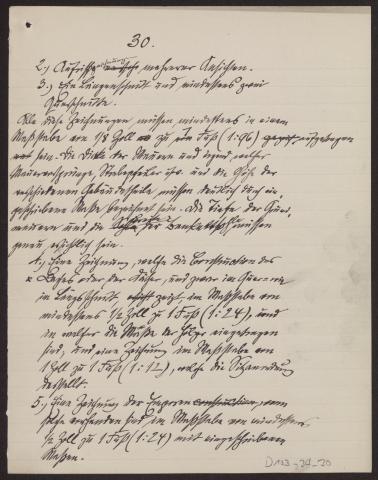 30.
2.) Aufrisse mehrerer Ansichten.
3.) Ein Längenschnitt und mindestens zwei
Querschnitte.
Alle diese Zeichnungen müssen mindestens in einem
Maßstabe von 1/8 Zoll zu 1 Fuß (1:96) aufgetragen
sein. Die Dicke der Mauern und
Mauervorsprünge, Strebepfeiler etc. und die Höhe der
verschiedenen Gebäudetheile müssen deutlich durch ein-
geschriebene Maße bezeichnet sein. Die Tiefe der Grund-
mauern und die der müssen
genau ersichtlich sein.
4.) Eine Zeichnung, welche die Construction des
Daches oder der Dächer, und zwar im Quer- und
im Längsschnitt zeigt, im Maßstabe von
mindestens 1/2 Zoll zu 1 Fuß (1:24), und
in welcher die Maße der Hölzer eingetragen
sind, und eine Zeichnung im Maßstabe von
1 Zoll zu 1 Fuß (1:12), welche die
desselben.
5.) Eine Zeichnung der Emporen, wenn
solche vorhanden sind im Maßstabe von mindestens
1/2 Zoll zu 1 Fuß (1:24) mit eingeschriebenen
Maßen.
D123_24_30